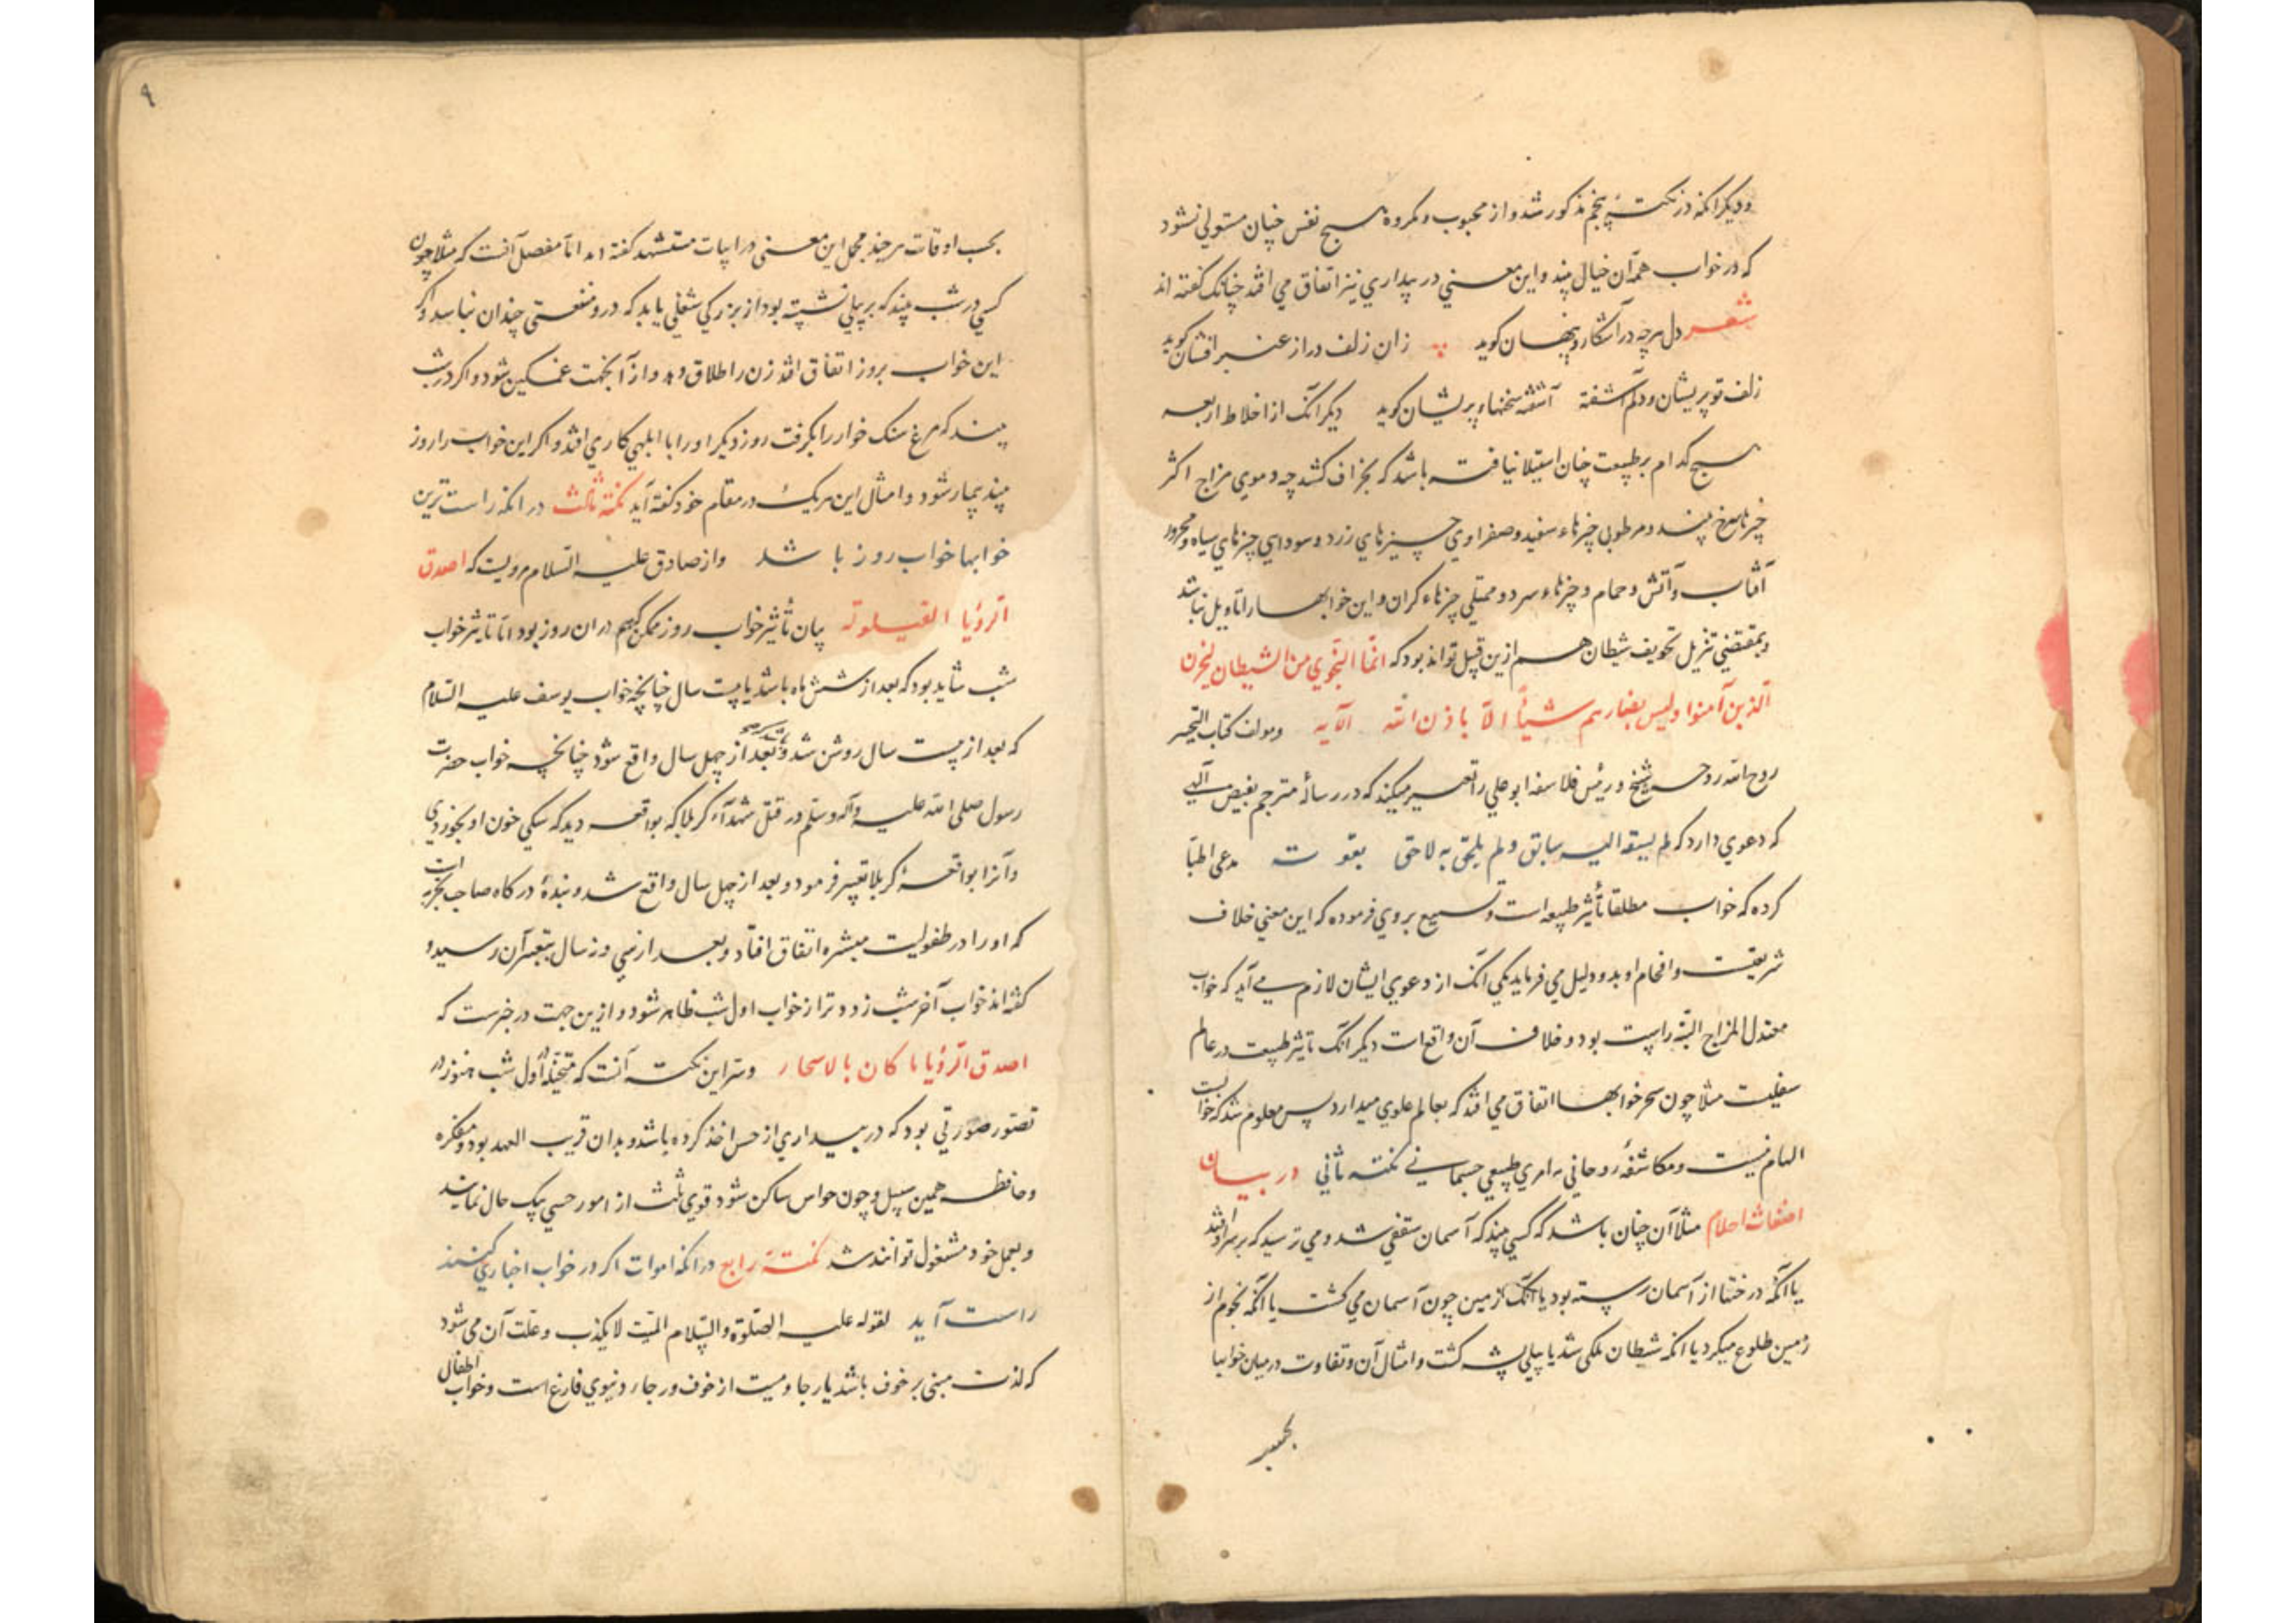 ودیکر آنکه در نکتهٔ پنجم مذکور شد و از محبوب و مکروه هیچ نفس چنان مستولی نشود
که در خواب همه آن خیال بیند و این معنی در بیداری نیز اتفاق می افتد چنانک گفته اند
شعر دل هرچه در آشکار و پنهان کوید زان زلف دراز عنبر افشان کوید
زلف تو پریشان و دلم آشفته آشفته سخنها پریشان کوید دیکر آنک از اخلاط اربعه
هیچ کدام بر طبیعت چنان استیلا نیافته باشد که بجزاف کشد چه دموی مزاج اکثر
چیزها سرخ بیند و مرطوبی چیزهاء سفید و صفراوی چیزهای زرد و سودایی چیزهای سیاه و محرور
آفتاب و آتش و حمام و چیزهاء سرد و ممتلی چیزهاء کران و این خوابها را تاویل نباشد
وبمقتضی تنزیل تخویف شیطان هم ازین قبیل تواند بود که انما النجوی من الشیطان لیحزن
الذین آمنوا ولیس بضارهم شیأ الا باذن الله الآیه ومولف کتاب التحبیر
روح الله روحه شیخ و رئیس فلاسفه ابو علی را تعییر میکند که در رسالهٔ مترجم بفیض الهی
که دعوی دارد که لم یسبقه الیه سابق ولم یلحق به لاحق بقوت مدعی اطبا
کرده که خواب مطلقا تأثیر طبیعه است و تشنیع بروی فرموده که این معنی خلاف
شریعت و افحام او بدو دلیل می فرماید یکی آنک از دعوی ایشان لازم می آید که خواب
معتدل المزاج البته راست بود و خلاف آن واقعات دیکر آنک تاثیر طبیعت در عالم
سفلیت مثلا چون سحر خوابها اتفاق می افتد که بعالم علوی میدارد پس معلوم شد که خواب
الهام نیست ومکاشفهٔ روحانی نه امری طبیعی جسمانی نکته ثانی در بیان
اضغاث احلام مثلا آن چنان باشد که کسی بیند که آسمان سقفی شد و می ترسید که بر سر او افتد
یا آنکه درختها از آسمان رسته بود یا آنک زمین چون آسمان می کشت یا آنکه نجوم از
زمین طلوع میکرد یا آنکه شیطان ملکی شد یا پیلی پشه کشت و امثال آن وتفاوت در میان خوابها
بحسب
۹
بحسب اوقات هرچند مجمل این معنی در ابیات مستشهد گفته اند اما مفصل آنست که مثلا چون
کسی در شب بیند که بر پیلی نشسته بود از بزرکی شغلی یابد که درو منفعتی چندان نباشد و اکر
این خواب بروز اتفاق افتد زن را طلاق دهد و از آن جهت غمکین شود و اکر در شب
بیند که مرغ سنک خوار را بکرفت روز دیکر او را با ابلهی کاری افتد و اکر این خواب را روز
بیند بیمار شود و امثال این هریک در مقام خود کفته آید نکته ثالث در آنکه راست ترین
خوابها خواب روز باشد واز صادق علیه السلام مرویست که اصدق
الرؤیا القیلولة بیان تأثیر خواب روز ممکن که هم در ان روز بود اما تاثیر خواب
شب شاید بود که بعد از شش ماه باشد یا بیست سال چنانچه خواب یوسف علیه السلام
که بعد از بیست سال روشن شد و بعد از چهل سال واقع شود چنانچه خواب حضرت
رسول صلی الله علیه وآله وسلم در قتل شهدآء کربلا که بواقعه دید که سکی خون او بخوردی
وآنرا بواقعهٔ کربلا تعبیر فرمود و بعد از چهل سال واقع شد و بندهٔ درکاه صاحب تجربه است
که او را در طفولیت مبشره اتفاق افتاد و بعد از سی و نه سال بتعبیر آن رسید و
گفته اند خواب آخر شب زودتر از خواب اول شب ظاهر شود و ازین جهت در خبرست که
اصدق الرؤیا ما کان بالاسحار وسر این نکته آنست که متخیله اول شب هنوز در
تصور صورتی بود که در بیداری از حس اخذ کرده باشد و بدان قریب العهد بود و مفکره
وحافظه همین سبیل و چون حواس ساکن شود قوی ثلث از امور حسی بیک حال نمایند
وبعمل خود مشغول توانند شد نکتهٔ رابع در آنکه اموات اکر در خواب اخباری کنند
راست آید لقوله علیه الصلوة والسلام المیت لا یکذب وعلت آن می شود
که لذت مبنی بر خوف باشد یا رجا و میت از خوف و رجاء دنیوی فارغ است وخواب اطفال